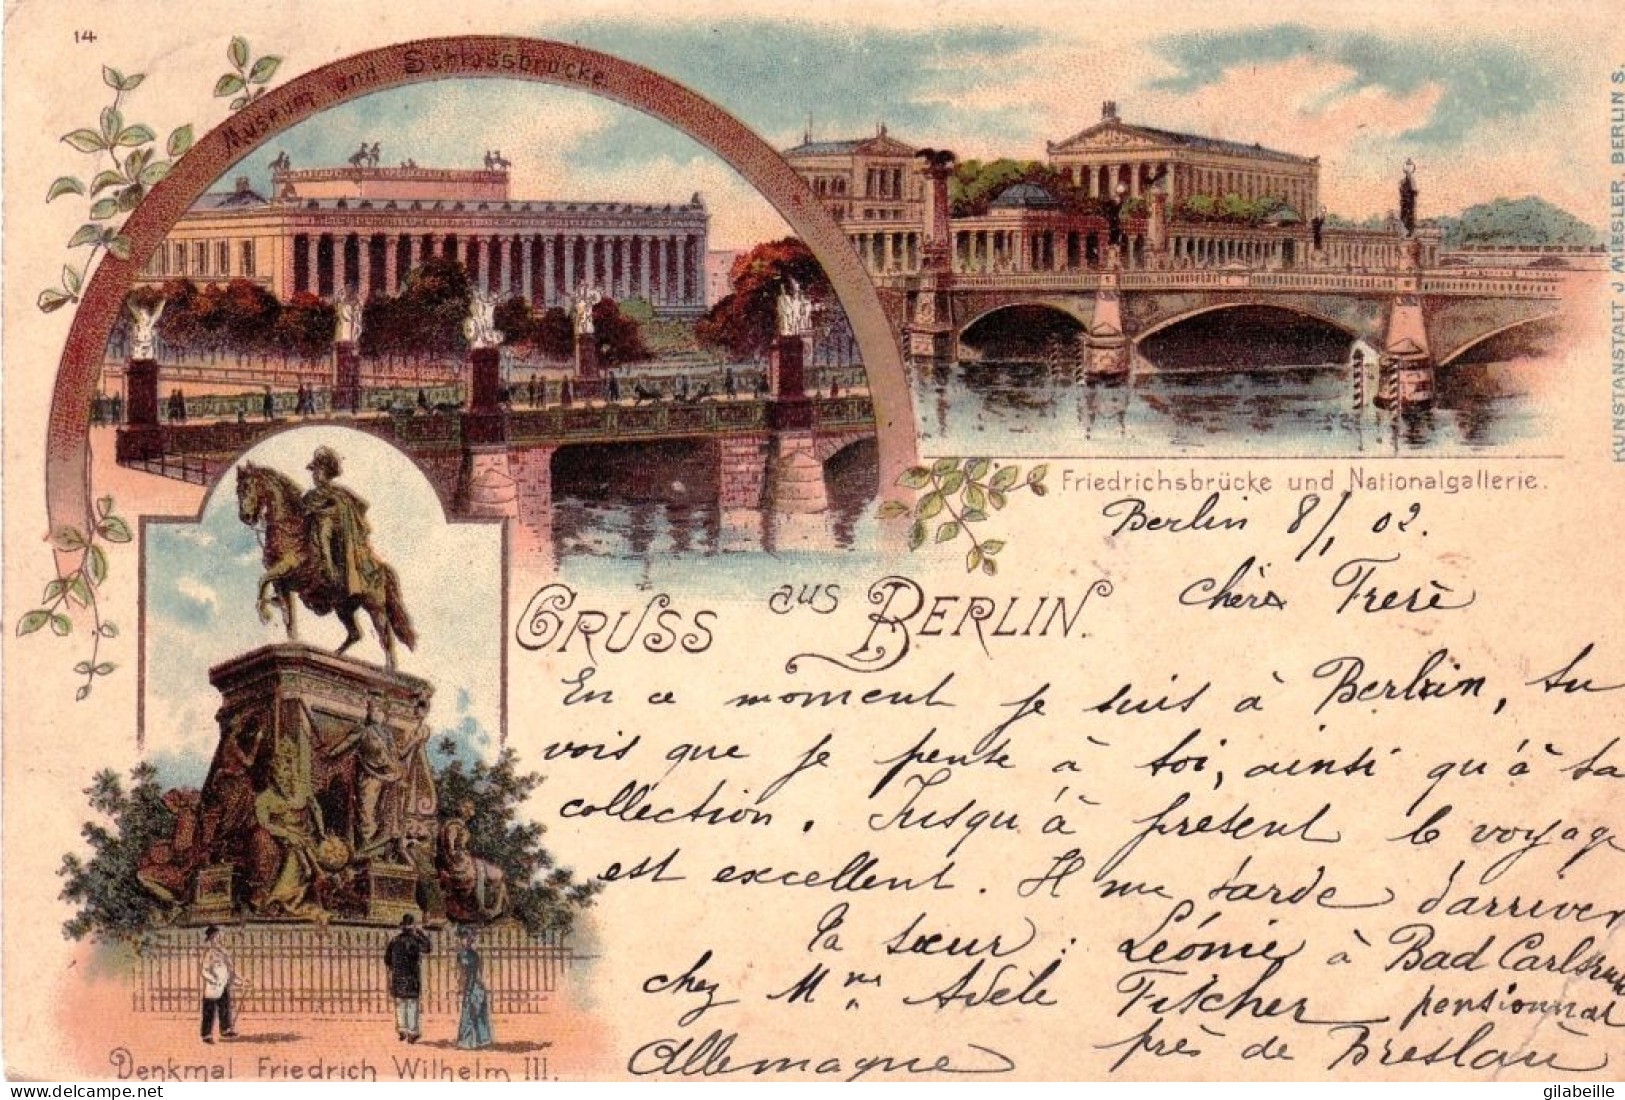 14
Museum und Schlossbrücke
KUNSTANSTALT J MIESLER, BERLIN S.
Friedrichsbrücke und Nationalgallerie.
Berlin 8/1 02.
GRUSS aus BERLIN.
chère Frère
En ce moment je suis à Berlin, tu
vois que je pense à toi, ainsi qu'à ta
collection. Jusqu'à présent le voyage
est excellent. Il me tarde d'arriver
Ta sœur : Léonie à Bad Carlsruhe
chez Mme Adèle Fischer pensionnat
Allemagne près de Breslau
Denkmal Friedrich Wilhelm III.
delcampe.net
gilabeille